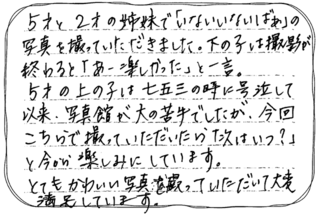 5才と2才の姉妹で「いないいないばぁ」の
写真を撮っていただきました。下の子は撮影が
終わると「あー楽しかった」と一言。
5才の上の子は七五三の時に号泣して
以来、写真館が大の苦手でしたが、今回
こちらで撮っていただいたら「次はいつ?」
と今から楽しみにしています。
とてもかわいい写真を撮っていただいて大変
満足しています。